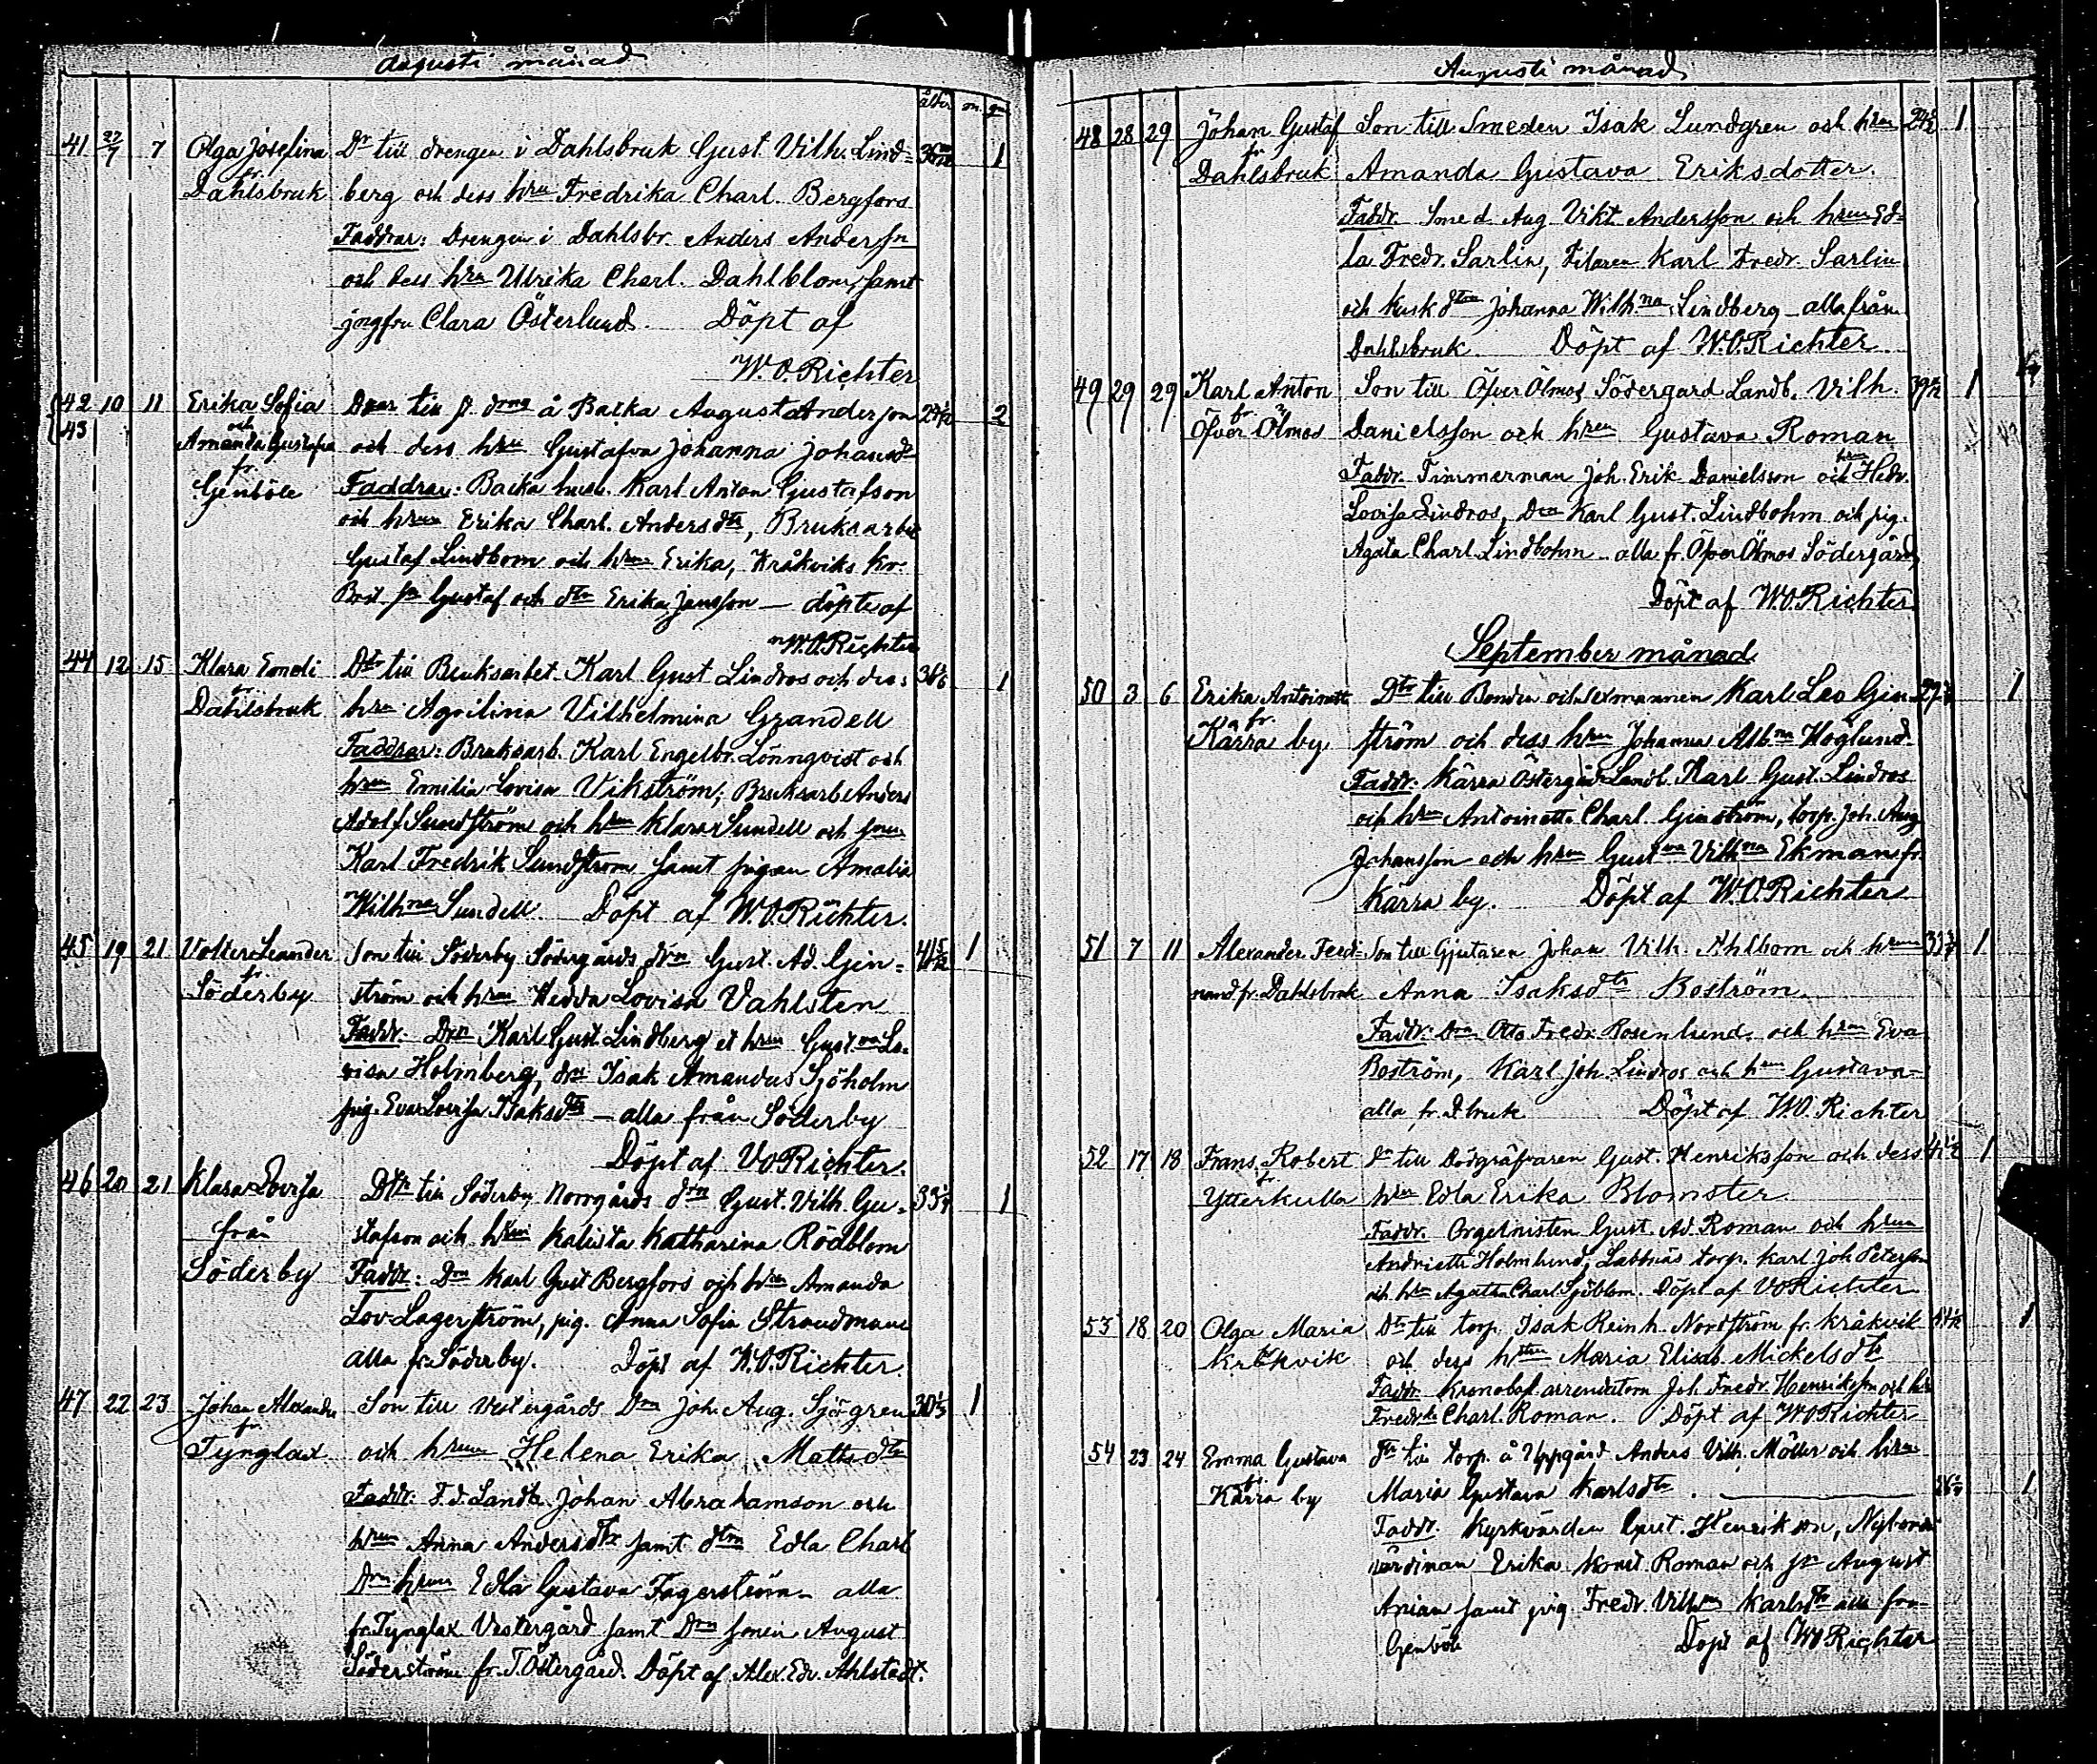 Augusti månad
ålder m. qu
41 27/7 7 Olga Josefina Dr till drengen i Dahlsbruk Gust. Vilh. Lind= 1
fr. Dahlsbruk berg och dess hru Fredrika Charl. Bergfors
Faddrar: Drengen i Dahlsbr. Anders Andersson
och dess hru Ulrika Charl. Dahlblom, samt
jngfru Clara Österlund. Döpt af
W.O. Richter
42 10 11 Erika Sofia till å Backa August Anderson 2
43 och Amanda Gustafva och dess hru Gustafva Johanna Johansd
fr. Genböle Faddrar: Backa Karl Anton Gustafson
och hrun Erika Charl. Andersdtr, Bruksarb
Gustaf Lindbom och hrun Erika, Kråkviks
Gustaf och dtr Erika Jansson – döpte af
W.O. Richter
44 12 15 Klara Emeli Dtr till Bruksarbet. Karl Gust Lindros och dess 1
fr. Dahlsbruk hru Agvilina Vilhelmina Grandell
Faddrar: Bruksarb. Karl Engelbr. Lönnqvist och
hrun Emilia Lovisa Vikström, Bruksarb Anders
Adolf Sundström och hrun Klara Sundell och
Karl Fredrik Sundström samt pigan Amalia
Wilhna Sundell. Döpt af W.O. Richter.
45 19 21 Volter Leander Son till Söderby Södergårds drn Gust. Ad. Gin= 41 5/12 1
fr. Söderby ström och hrun Hedda Lovisa Vahlsten
Faddr. Drn Karl Gust. Lindberg et hrun Gustva Lo=
visa Holmberg, drn Isak Amandus Sjöholm
pig. Eva Lovisa Isaksdtr – alla från Söderby
Döpt af VO Richter.
46 20 21 Klara Lovisa Dtr till Söderby Norrgårds drn Gust. Vilh. Gu= 1
från stafson och hrun Kalista Katharina Rödblom
Söderby Faddr: Drn Karl Gust Bergfors och hrun Amanda
Lov. Lagerström, pig. Anna Sofia Strandman
alla fr. Söderby. Döpt af W.O. Richter.
47 22 23 Johan Alexander Son till Vestergårds Drn Joh. Aug. Sjögren 30 1/3 1
fr. Tynglax och hrun Helena Erika Mattsdtr
Faddr. F.d. Landb. Johan Abrahamson och
hrun Anna Andersdtr samt dtrn Edla Charl
Drn hrun Edla Gustava Fagerström – alla
fr. Tynglax Vestergård samt Drn sonen August
Söderström fr. T. Östergård. Döpt af Alex. Edv. Ahlstedt.
Augusti månad
48 28 29 Johan Gustaf Son till Smeden Isak Lundgren och hrun 1
fr. Dahlsbruk Amanda Gustava Eriksdotter.
Faddr. Smed. Aug. Vikt. Andersson och hrun Ed=
la Fredr. Sarlin, Filaren Karl Fredr. Sarlin
och kuskdtrn Johanna Wilhna Lindberg – alla från
Dahlsbruk. Döpt af W.O. Richter.
49 29 29 Karl Anton Son till Öfver Ölmos Södergård Landb. Vilh. 1
fr. Öfver Ölmos Danielsson och hrun Gustava Roman
Faddr. Timmerman Joh. Erik Danielsson och hrun Hedv.
Lovisa Lindros, Drn Karl Gust. Lindbohm och pig.
Agata Charl. Lindbohm – alla fr. Öfver Ölmos Södergård,
Döpt af W.O. Richter
September månad
50 3 6 Erika Antoinette Dtr till Bonden och sexmannen Karl Leo Gin= 1
fr. Kärra by ström och dess hrun Johanna Albna Höglund.
Faddr. Kärra Östergårds Landb. Karl Gust. Lindros
och hrun Antoinette Charl. Ginström, torp. Joh. Aug
Johansson och hrun Gustva Vilhna Ekman fr.
Kärra by. Döpt af W.O. Richter
51 7 11 Alexander Ferdi- Son till Gjutaren Johan Vilh. Ahlbom och hrun 1
nand fr. Dahlsbruk Anna Isaksdtr Boström.
Faddr: Drn Otto Fredr. Rosenlund, och hrun Eva
Boström, Karl Joh. Lindros och hrun Gustava –
alla fr. D.bruk Döpt af W.O. Richter
52 17 18 Frans Robert Sn till Dödgräfvaren Gust. Henriksson och dess 1
fr. Ytterkulla hrun Edla Erika Blomster
Faddr. Orgelnisten Gust. Ad. Roman och hrun
Andriette Holmlund, Labbnäs torp. Karl Joh Peterson
och hrn Agatha Charl. Sjöblom. Döpt af VO Richter
53 18 20 Olga Maria Dtr till torp. Isak Reinh. Nordström fr. Kråkvik 1
Kråkvik och dess hustru Maria Elisab. Mickelsdtr
Faddr. Kronobost. arrendatorn Joh. Fredr. Henriksson och hru
Fredrka Charl. Roman. Döpt af WO Richter
54 23 24 Emma Gustava Dtr till torp. å Uppgård Anders Vilh. Möller och hrun
fr. Kärra by Maria Gustava Karlsdtr. 1
Faddr. Kyrkvärden Gust. Henrikson, Nybonde
värdinan Erika Konst. Roman och sn August
Arian samt pig. Fredr. Vilhna Karlsdtr alla från
Genböle Döpt af WO Richter